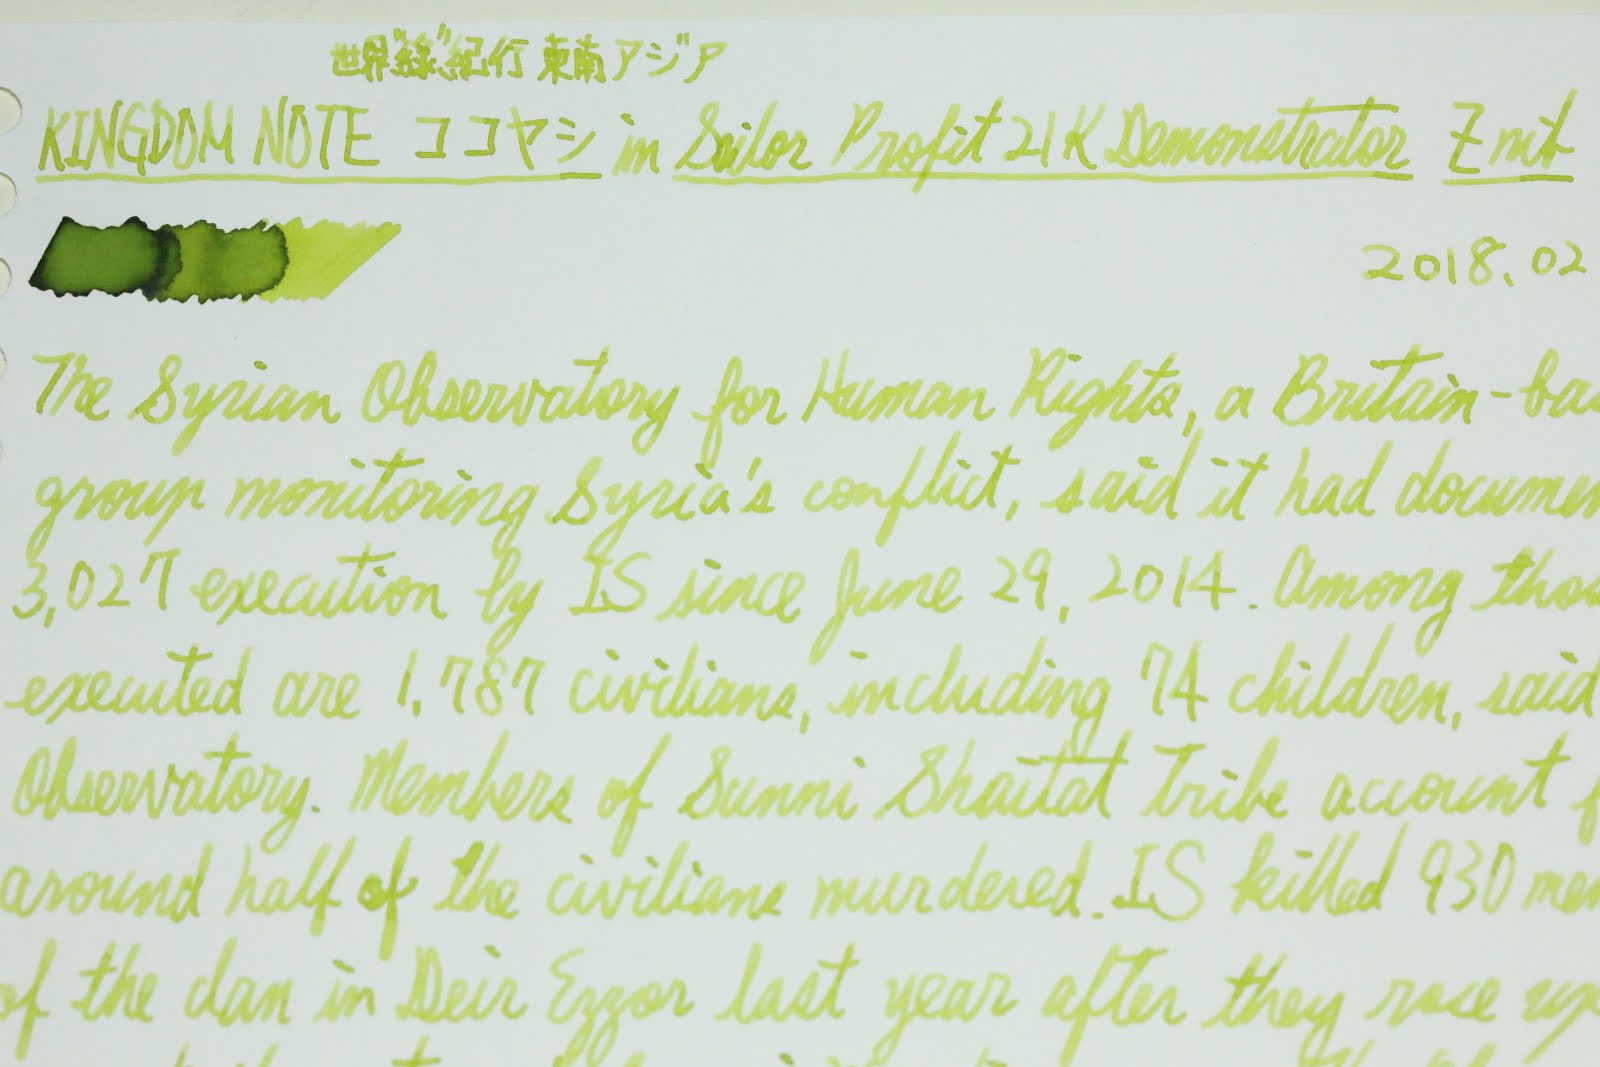 世界"緑"紀行 東南アジア
KINGDOM NOTE ココヤシ in Sailor Profit 21K Demonstrator Z nib
2018.02
The Syrian Observatory for Human Rights, a Britain-ba
group monitoring Syria's conflict, said it had documen
3,027 execution by IS since June 29, 2014. Among thos
executed are 1,787 civilians, including 74 children, said
Observatory. Members of Sunni Shaitat Tribe account f
around half of the civilians murdered. IS killed 930 mem
of the clan in Deir Ezzor last year after they rose up